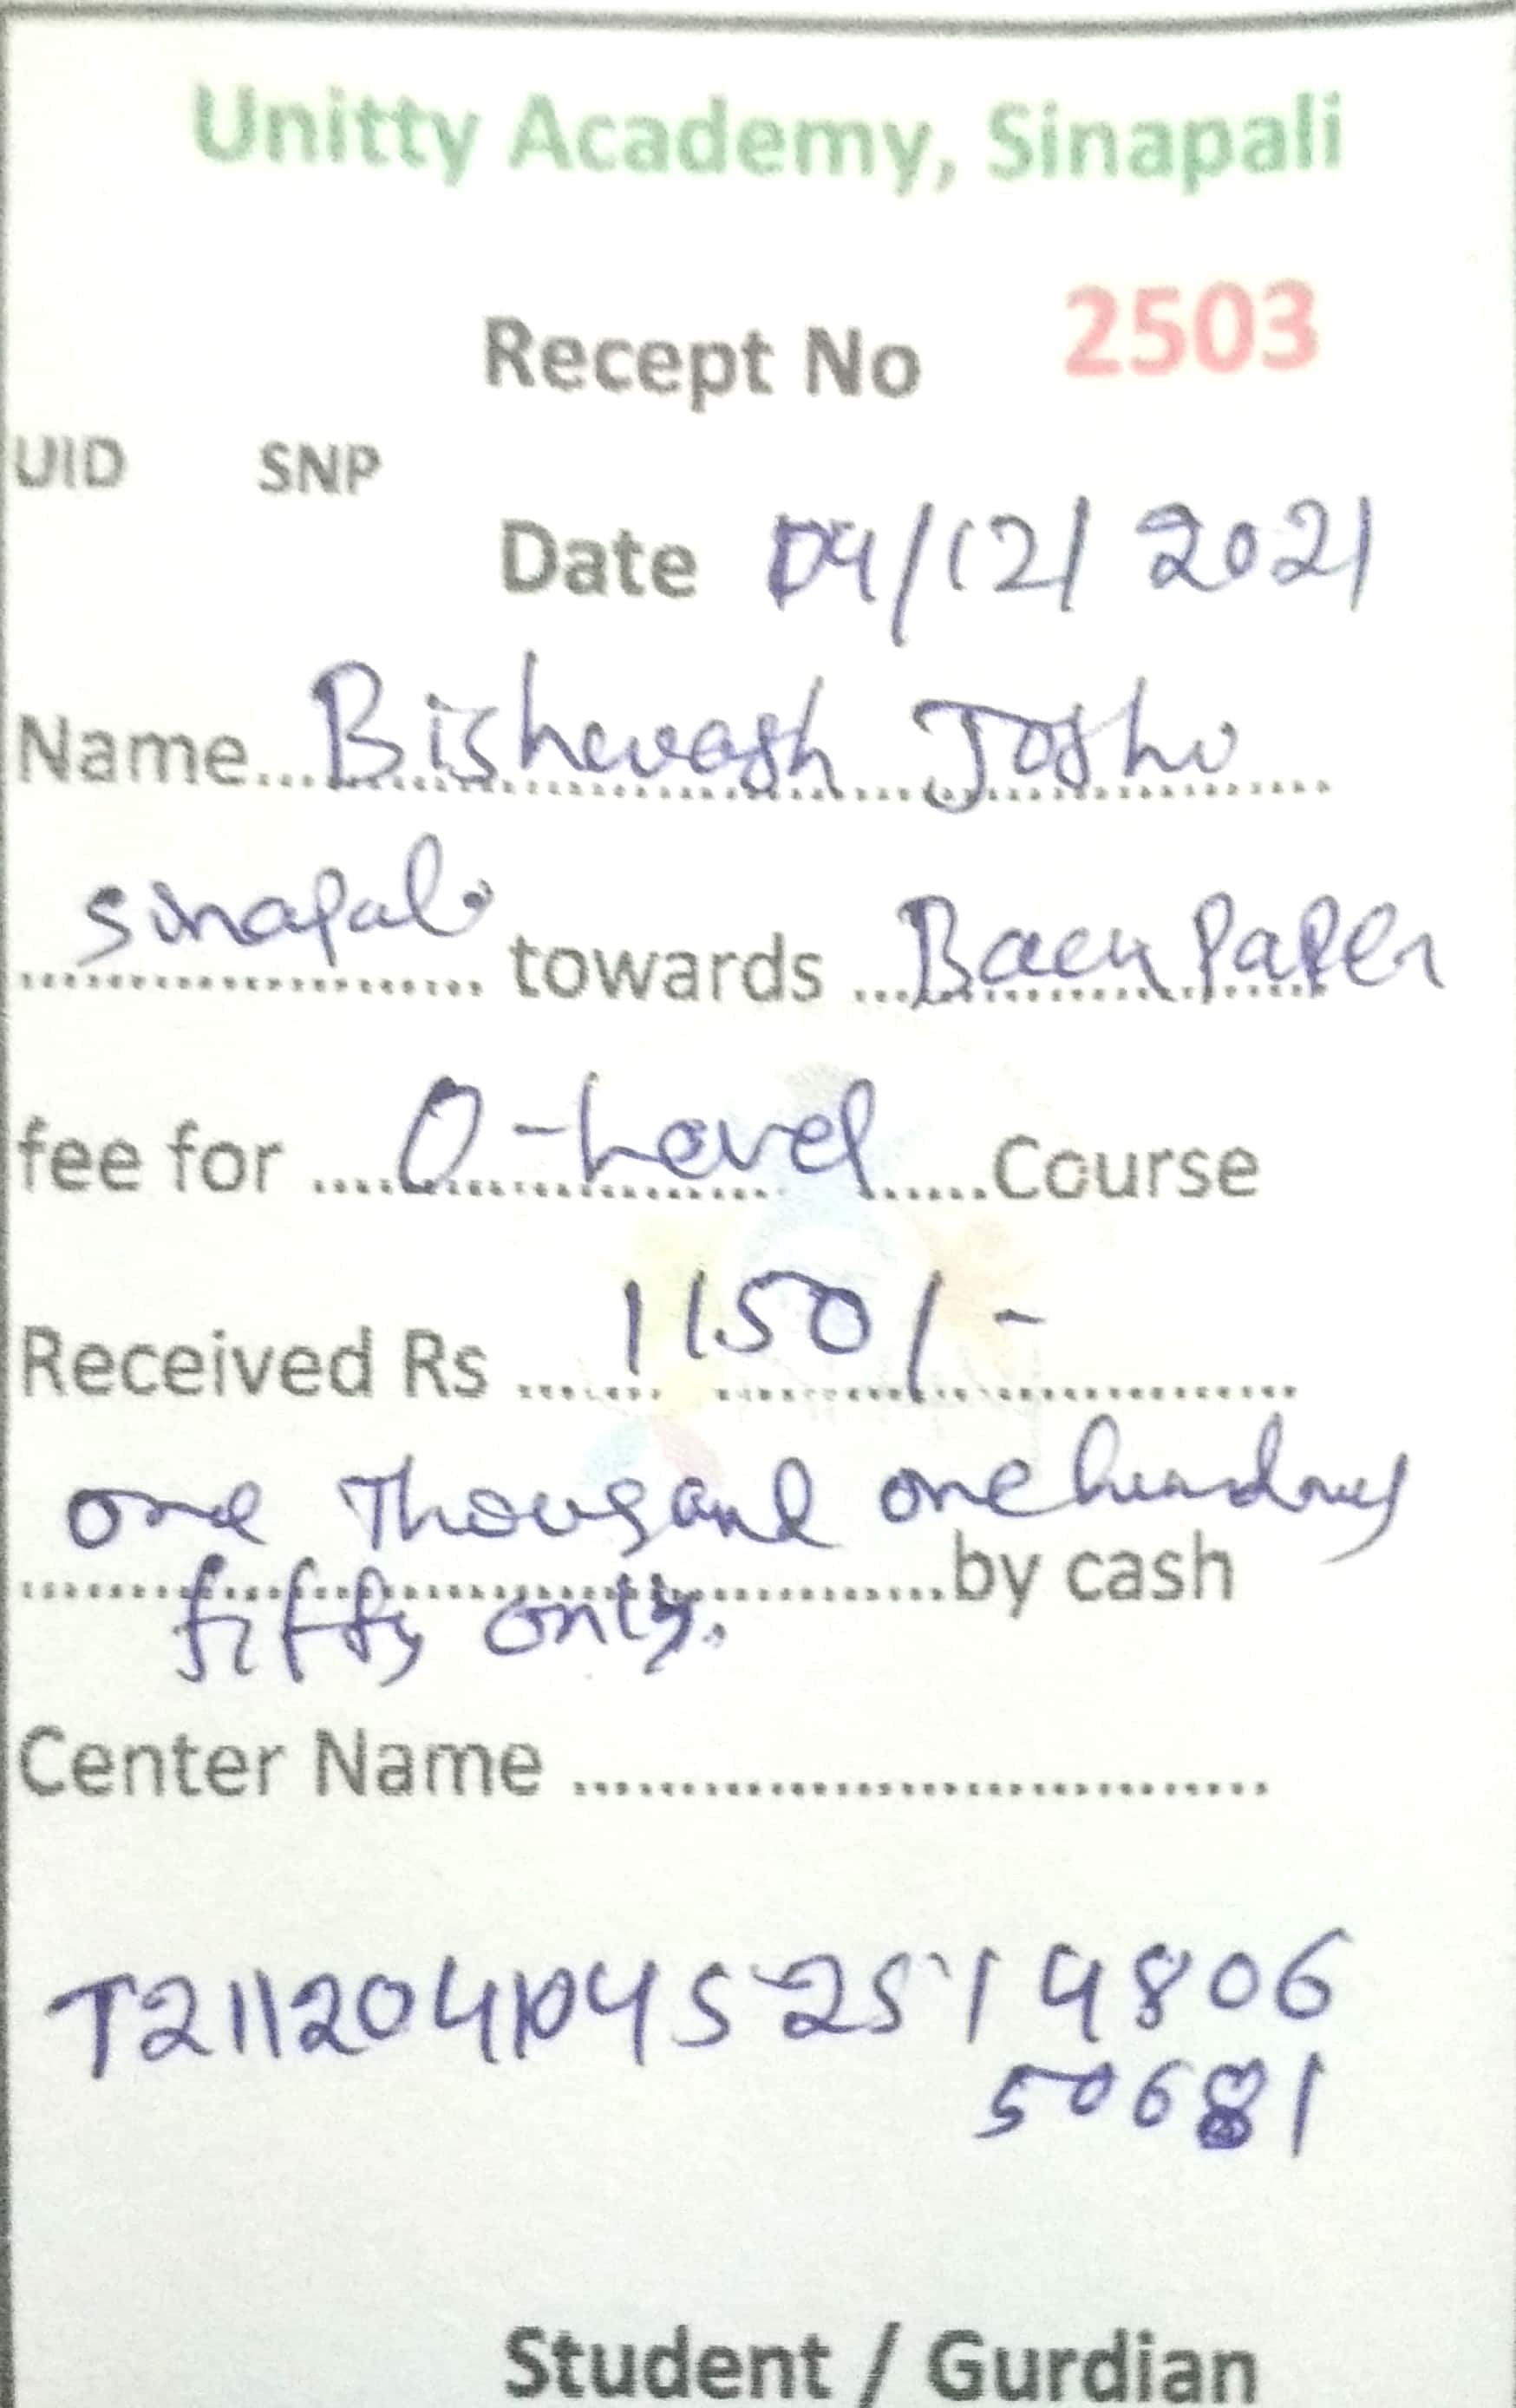 Unitty Academy, Sinapali
Recept No 2503
UID SNP
Date 04/12/2021
Name... Bishwash Joshi
Sinapali towards ... Back Paper
fee for .... O-Level ......Course
Received Rs ...... 1150/-
one Thousand one hundred
fifty only. by cash
Center Name ................................
T2112041045251 9806
50681
Student / Gurdian